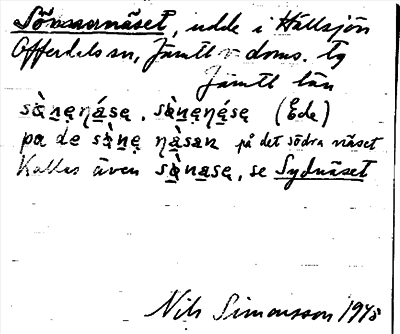 Sörnäset, udde i Hållsjön
Offerdals sn, Jämtl. v. doms. tg
Jämtl län
sàn̲ęŋásę, sàn̲ęŋésę (Ede)
pa de sàn̲ę ŋàsan på det södra näset
Kallas även sàn̲asę, se Sydnäset
Nils Simonsson 1948